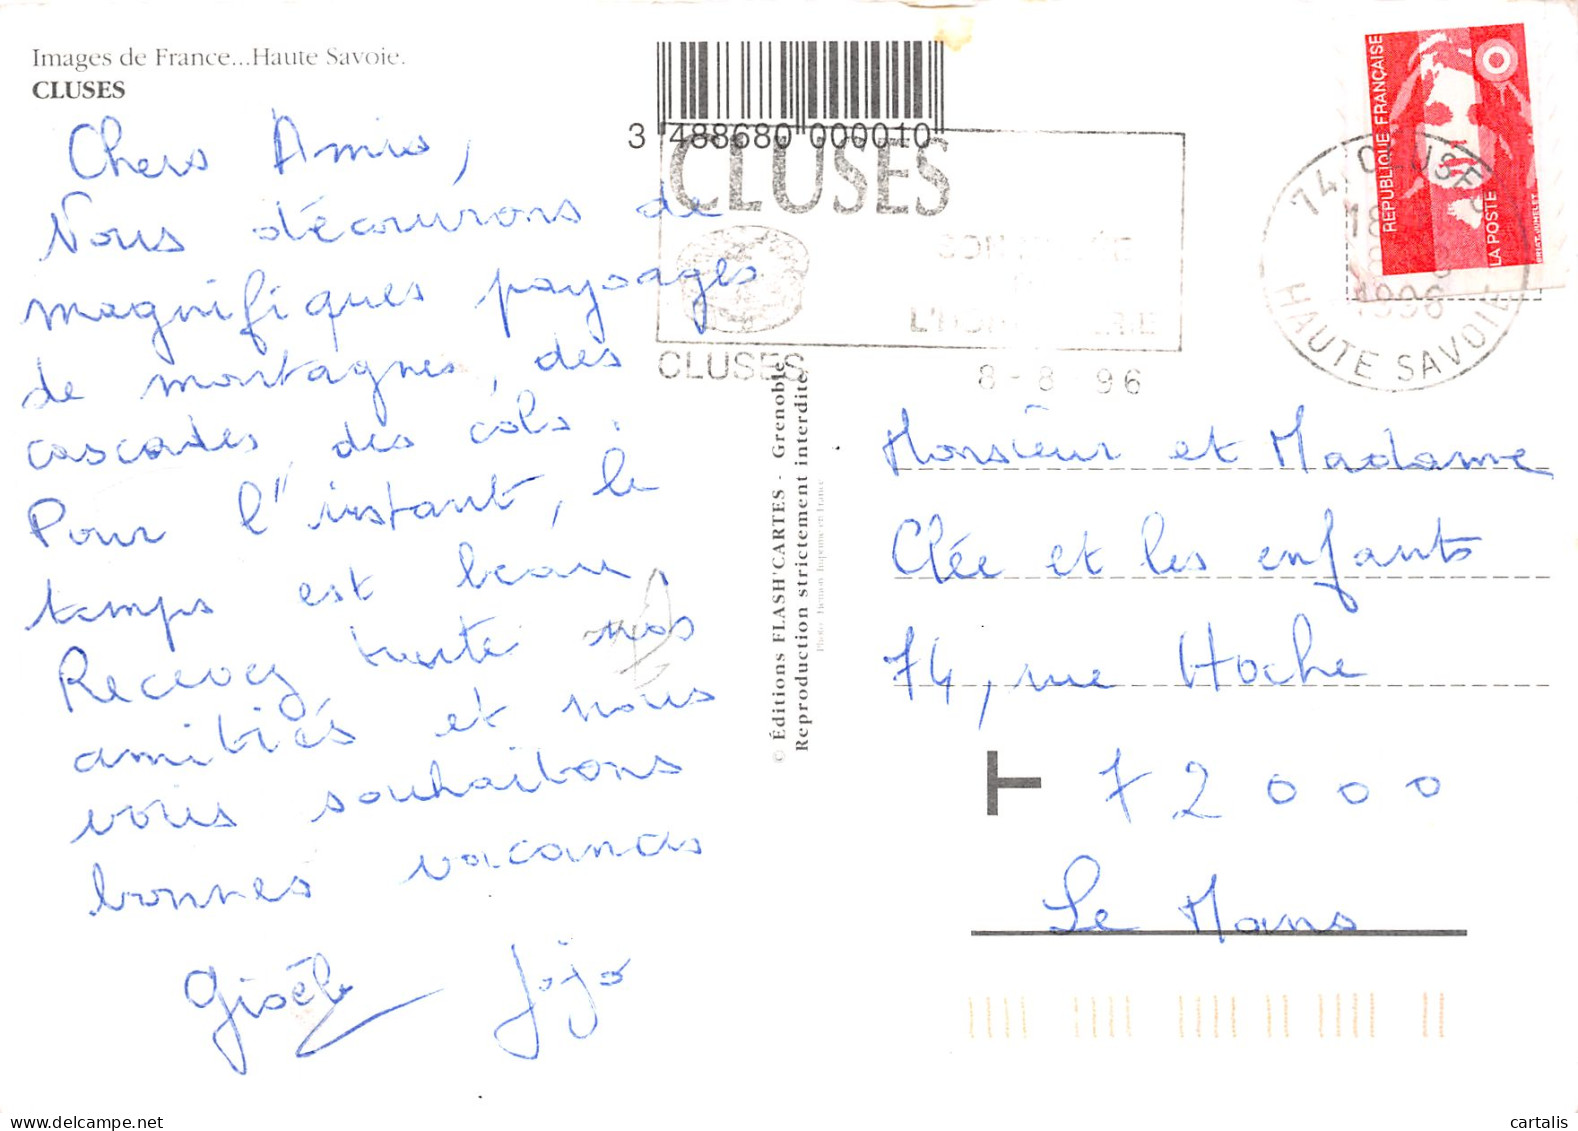 Images de France...Haute Savoie.
CLUSES
Chers Amis,
Nous découvrons de
magnifiques paysages
de montagnes, des
cascades, des cols.
Pour l'instant, le
temps est beau,
Recevez toute nos
amitiés et nous
vous souhaitons
bonnes vacances
Gisèle Jojo
3 488680 000010
CLUSES
CLUSES
8-8 96
74 CLUSES
18
1996
HAUTE SAVOIE
REPUBLIQUE FRANÇAISE
LA POSTE
© Éditions FLASH'CARTES - Grenoble
Reproduction strictement interdite
Imprimé en France
Monsieur et Madame
Clée et les enfants
74, rue Hoche
T 72000
Le Mans
cartalis
delcampe.net